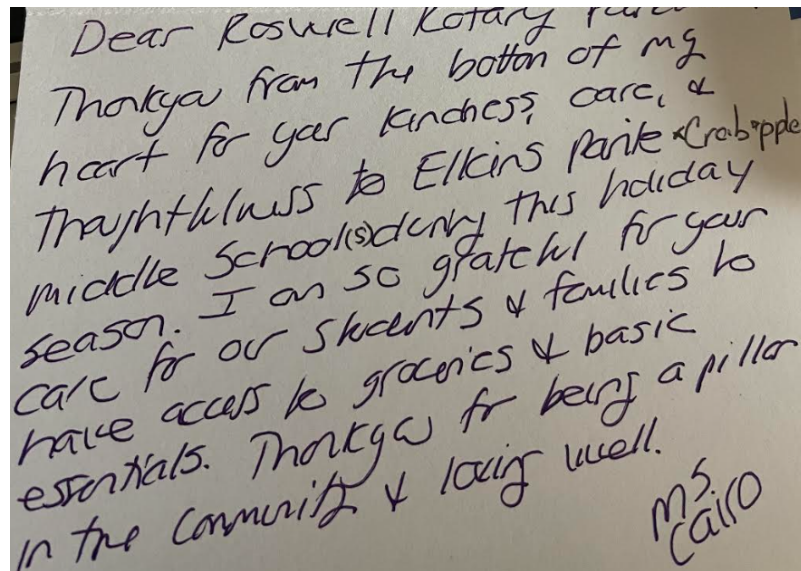 Dear Roswell Rotary
Thankyou from the bottom of my
heart for your kindness, care, &
thoughtfulness to Elkins Pointe & Crabapple
middle School(s) during this holiday
season. I am so grateful for your
care for our students & families to
have access to groceries & basic
essentials. Thankyou for being a pillar
in the community & loving well.
MS.
Cairo